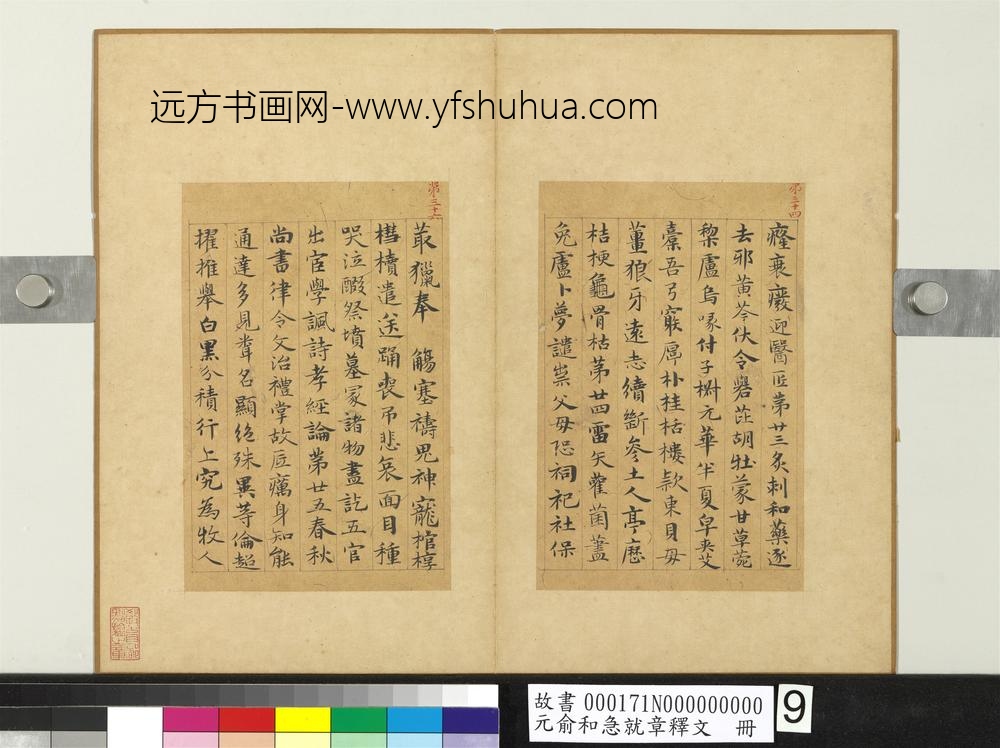 远方书画网-www.yfshuhua.com
第三十四
癃衰癈迎醫匠第廿三灸刺和藥逐
去邪黃芩伏令礜茈胡牡蒙甘草菀
棃盧烏喙付子椒元華半夏皁夾艾
橐吾弓窮厚朴桂栝樓款東貝母
薑狼牙遠志續斷參土人亭歷
桔梗龜骨枯第廿四雷矢雚菌藎
兔盧卜夢譴祟父母恐祠祀社保
第三十六
菆獵奉 觴塞禱鬼神寵棺椁
槥櫝遣送踊喪吊悲哀面目種
哭泣醊祭墳墓冢諸物盡訖五官
出宦學諷詩孝經論第廿五春秋
尚書律令文治禮掌故底礪身知能
通達多見聞名顯絕殊異等倫超
擢推舉白黑分積行上究為牧人
故書 000171N000000000
元俞和急就章釋文 冊
9